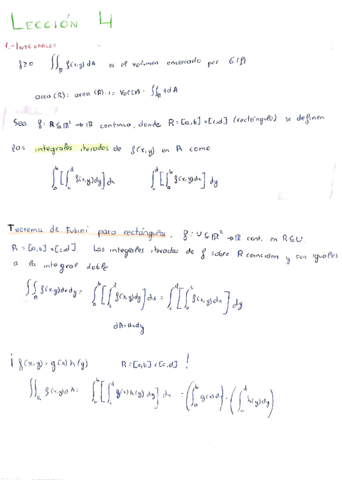 LECCIÓN 4
1.- INTEGRALES
f≥0 ∬_R f(x,y) dA es el volumen encerrado por G(f)
area(R) = area(R)·1 = Vol(R) = ∬_R 1 dA
Sea f: R⊆ℝ² → ℝ continua, donde R=[a,b]×[c,d] (rectángulo) se definen
las integrales iteradas de f(x,y) en R como
∫_a^b [∫_c^d f(x,y)dy] dx ∫_c^d [∫_a^b f(x,y)dx] dy
Teorema de Fubini para rectángulos. f: U⊆ℝ² → ℝ cont. en R⊆U.
R=[a,b]×[c,d]. Las integrales iteradas de f sobre R coinciden y son iguales
a la integral doble
∬_R f(x,y)dxdy = ∫_a^b [∫_c^d f(x,y)dy] dx = ∫_c^d [∫_a^b f(x,y)dx] dy
dA=dxdy
¡ f(x,y)=g(x)h(y) R=[a,b]×[c,d] !
∬_R f(x,y)dA = ∫_a^b [∫_c^d g(x)h(y)dy] dx = (∫_a^b g(x)dx)·(∫_c^d h(y)dy)